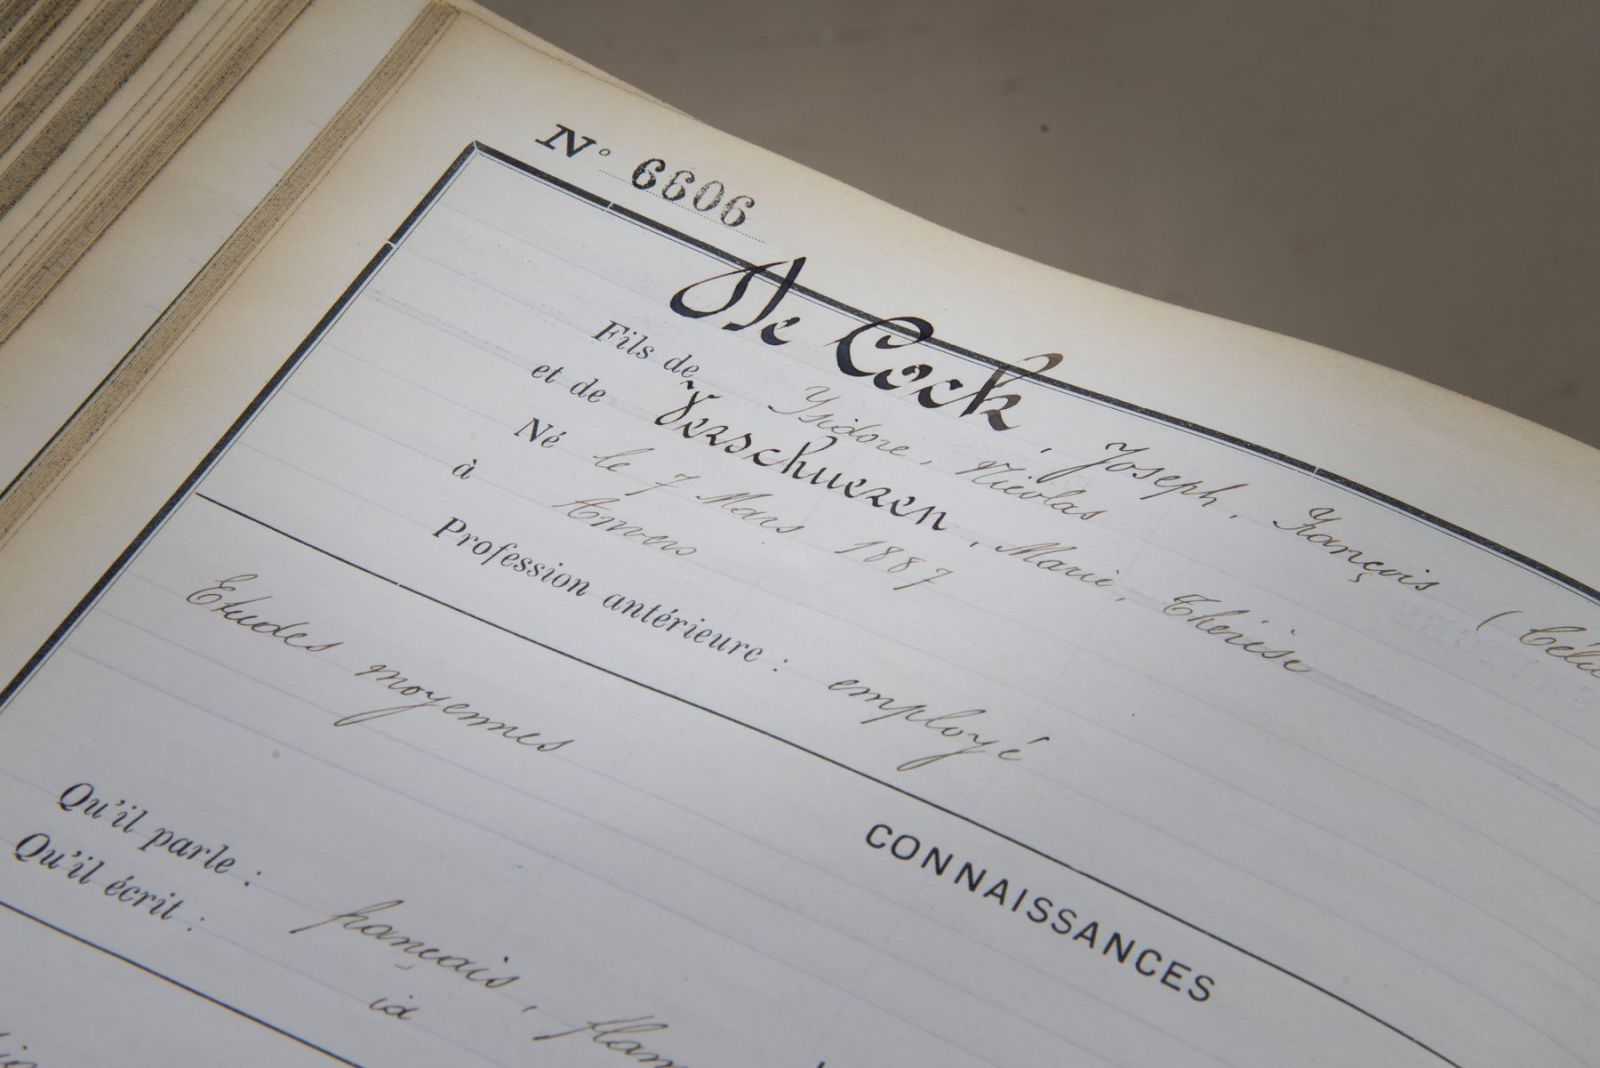 N° 6606
De Cock, Joseph, François (Céli
Fils de Ysidore, Nicolas
et de Verschueren, Marie, Thérèse
Né le 7 Mars 1887
à Anvers
Profession antérieure : employé
CONNAISSANCES
Etudes moyennes
Qu'il parle : français, flam
Qu'il écrit : id